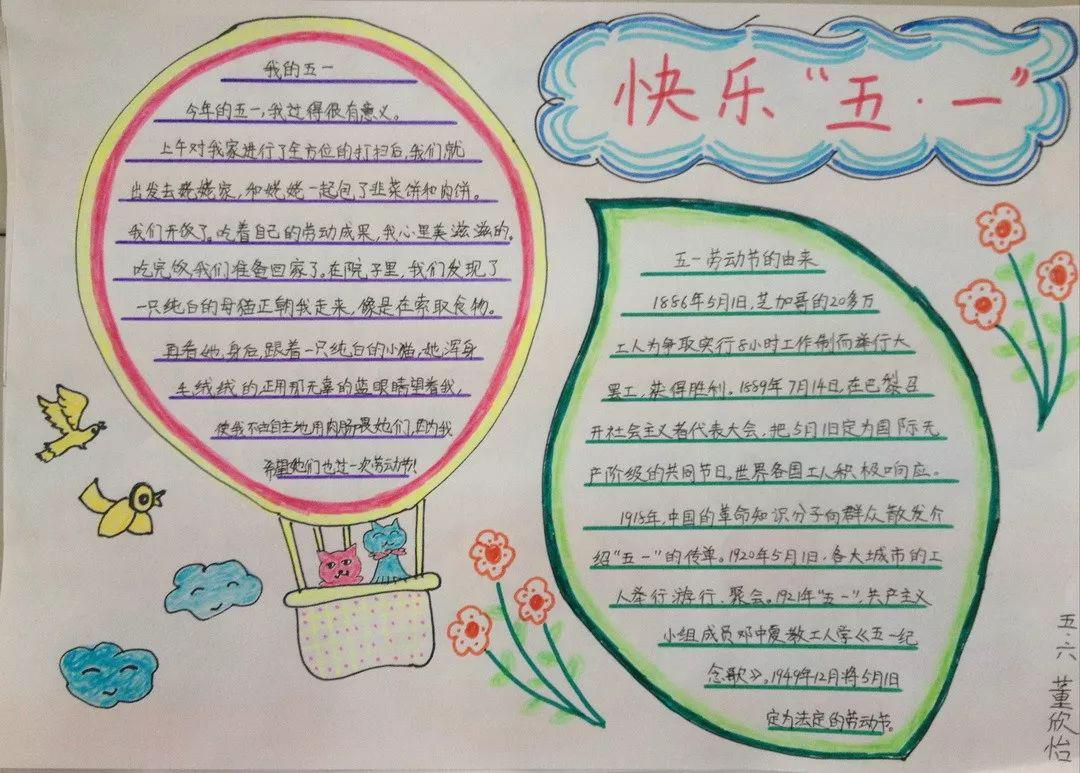 快乐“五·一”
我的五一
今年的五一,我过得很有意义。
上午对我家进行了全方位的打扫后,我们就
出发去姥姥家,和姥姥一起包了韭菜饼和肉饼。
我们开饭了。吃着自己的劳动成果,我心里美滋滋的。
吃完饭,我们准备回家了。在院子里,我们发现了
一只纯白的母猫正朝我走来,像是在索取食物。
再看她,身后,跟着一只纯白的小猫,她浑身
毛绒绒的正用那无辜的蓝眼睛望着我,
使我不由自主地用肉肠喂她们,因为我
希望她们也过一次劳动节!
五一劳动节的由来
1886年5月1日,芝加哥的20多万
工人为争取实行8小时工作制而举行大
罢工,获得胜利。1889年7月14日,在巴黎召
开社会主义者代表大会,把5月1日定为国际无
产阶级的共同节日。世界各国工人积极响应。
1918年,中国的革命知识分子向群众散发介
绍“五一”的传单。1920年5月1日,各大城市的工
人举行游行、聚会。1921年“五一”,共产主义
小组成员邓中夏教工人学《五一纪
念歌》。1949年12月将5月1日
定为法定的劳动节。
五·六 董欣怡